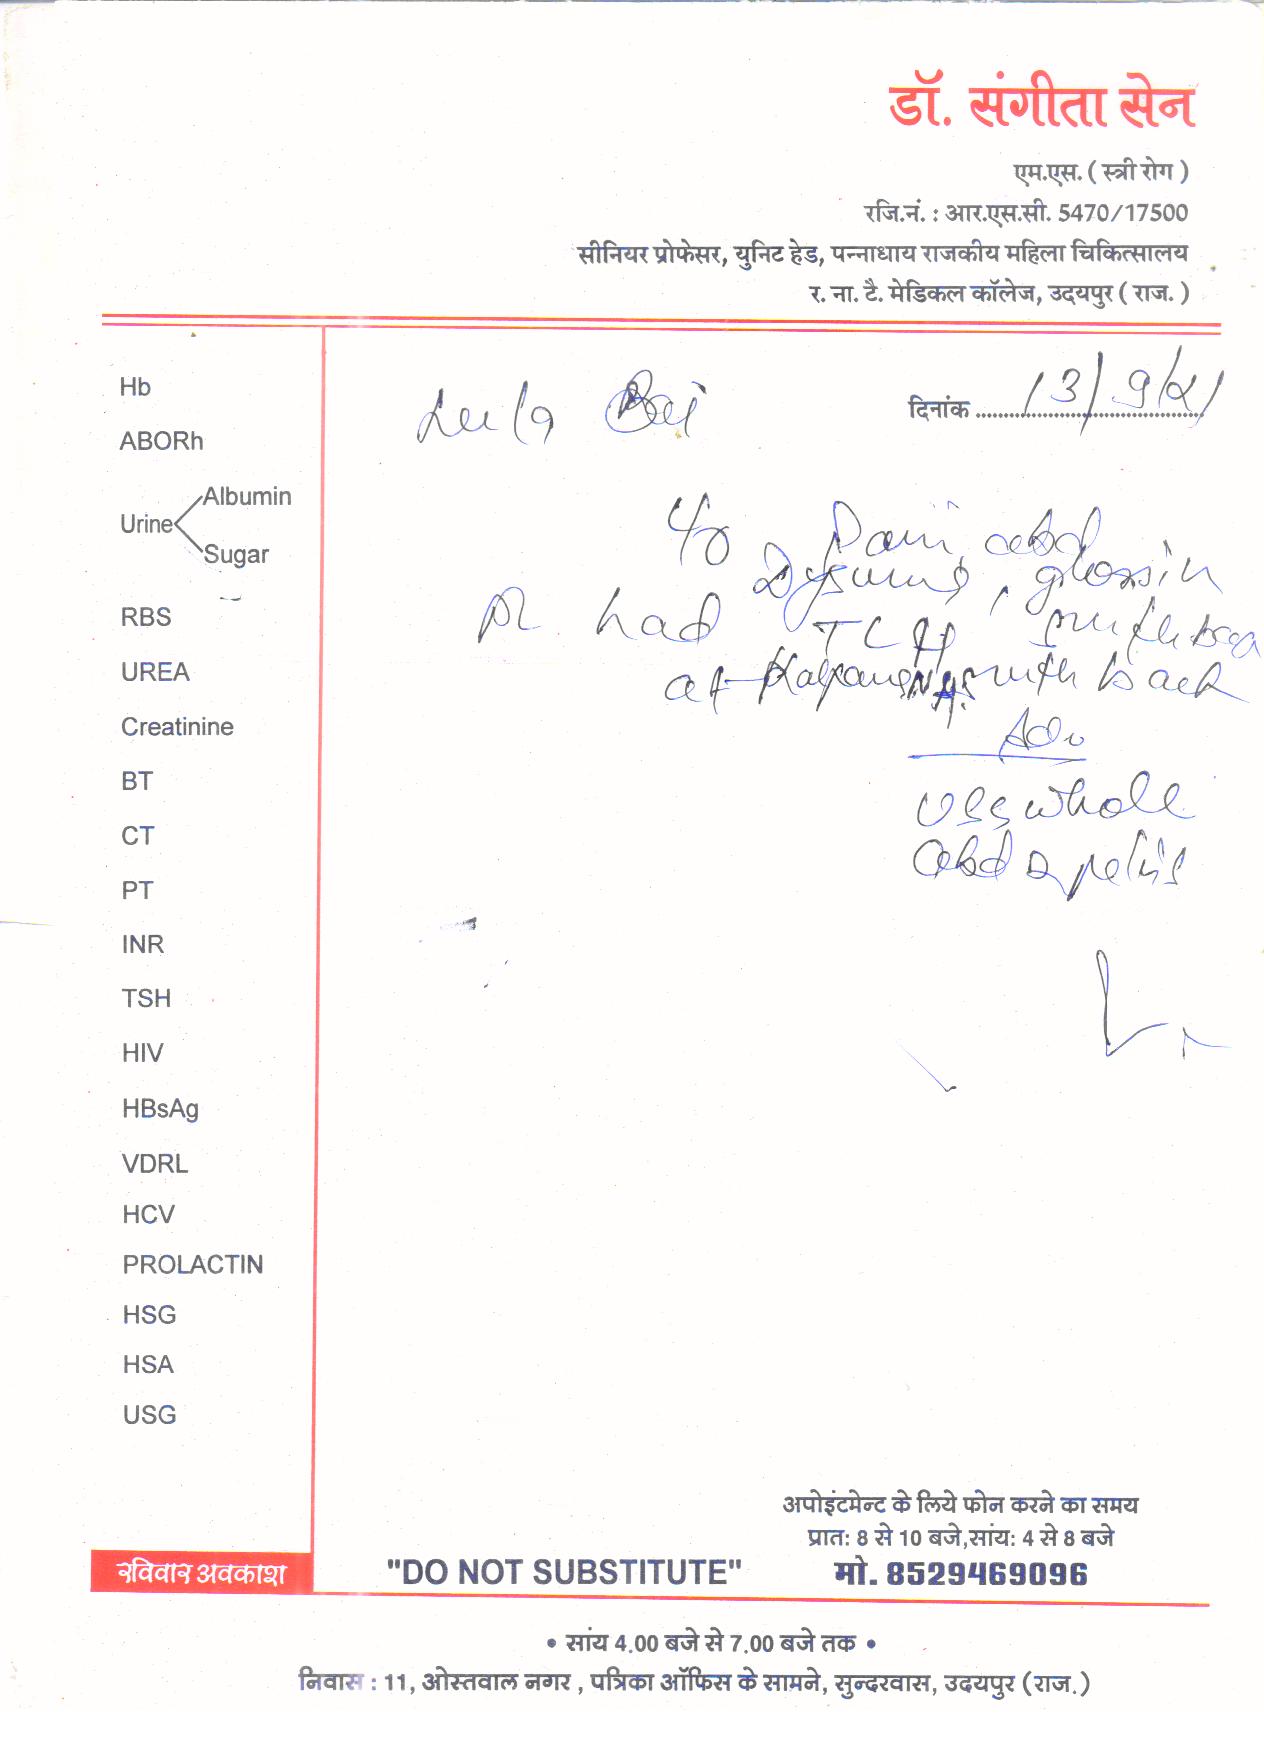 डॉ. संगीता सेन
एम.एस. ( स्त्री रोग )
रजि.नं. : आर.एस.सी. 5470/17500
सीनियर प्रोफेसर, युनिट हेड, पन्नाधाय राजकीय महिला चिकित्सालय
र. ना. टै. मेडिकल कॉलेज, उदयपुर ( राज. )
Hb
ABORh
Urine
Albumin
Sugar
RBS
UREA
Creatinine
BT
CT
PT
INR
TSH
HIV
HBsAg
VDRL
HCV
PROLACTIN
HSG
HSA
USG
रविवार अवकाश
Bai
दिनांक 13/9/21
C/o Pain abd
Pt had
at back
Adv
USG whole
abd & pelvis
अपोइंटमेन्ट के लिये फोन करने का समय
प्रात: 8 से 10 बजे,सांय: 4 से 8 बजे
"DO NOT SUBSTITUTE" मो. 8529469096
• सांय 4.00 बजे से 7.00 बजे तक •
निवास : 11, ओस्तवाल नगर , पत्रिका ऑफिस के सामने, सुन्दरवास, उदयपुर (राज.)